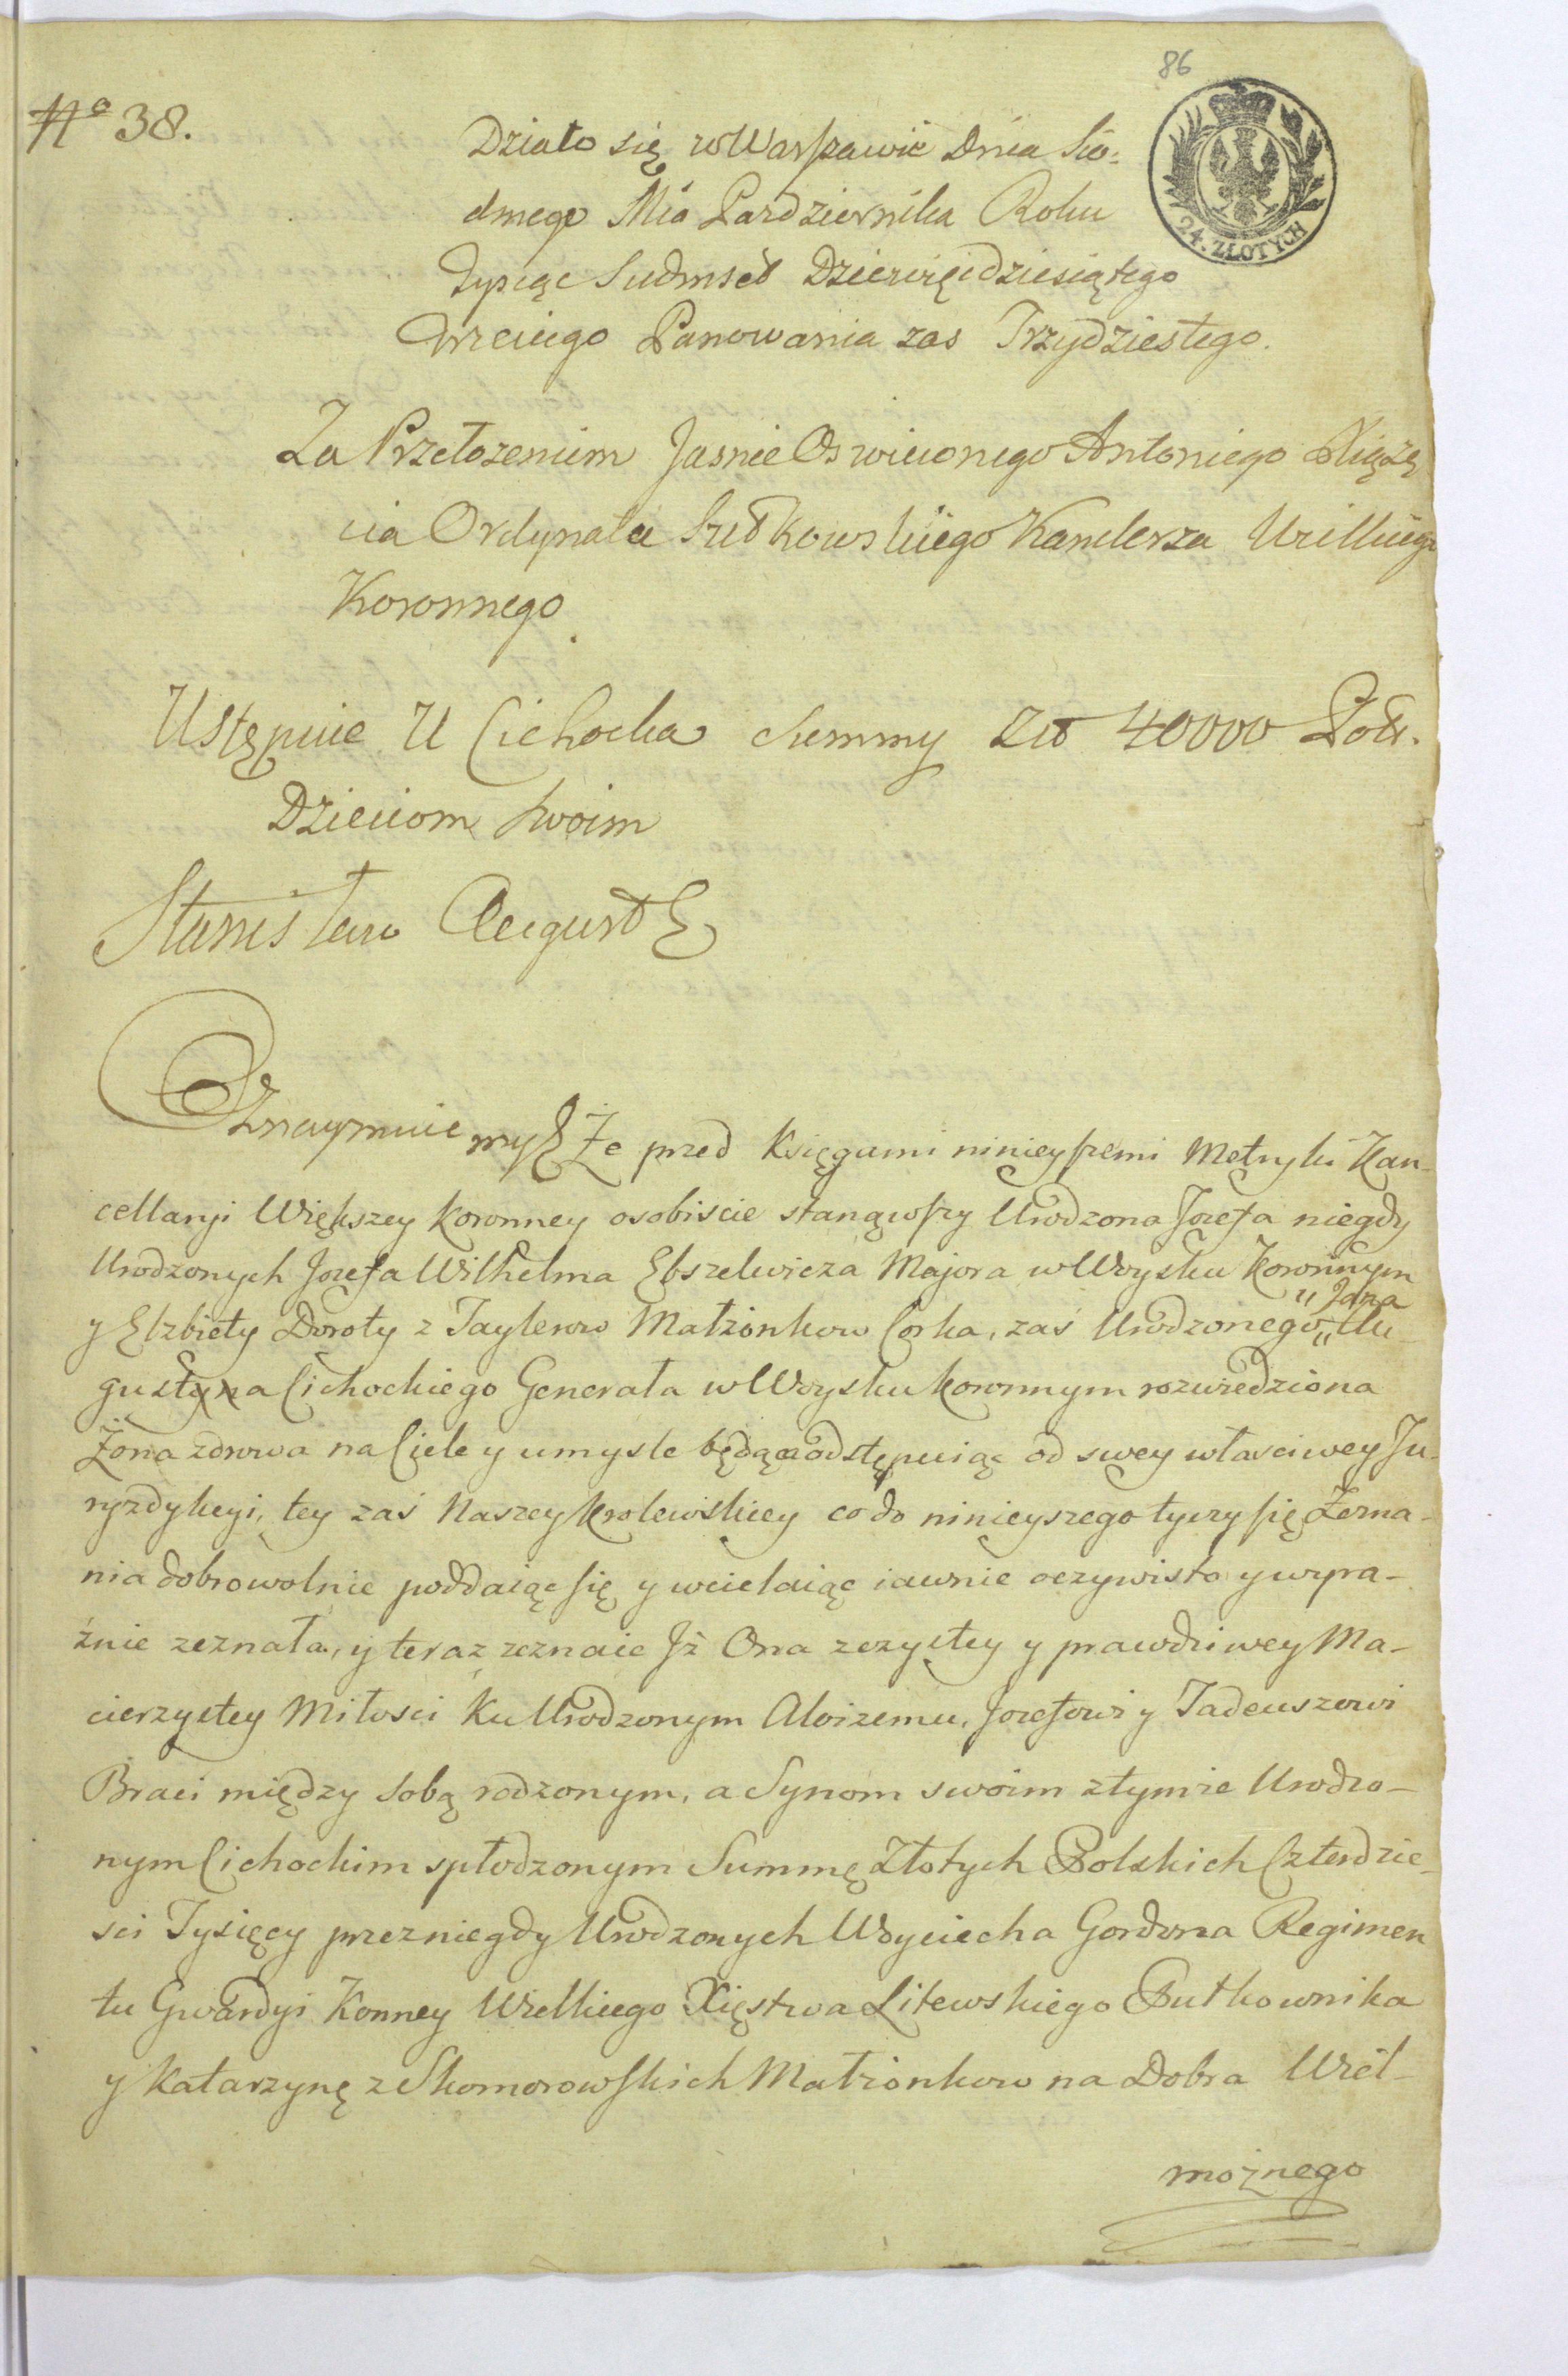 86
No 38.
24. ZŁOTYCH
Działo się w Warszawie Dnia Sio-
dmego Mca Pazdziernika Roku
Tysiąc Siedmset Dziewięćdziesiątego
Trzeciego Panowania zas Trzydziestego.
Za Przełozeniem Jasnie Oswieconego Antoniego Xiążę
cia Ordynata Sułkowskiego Kanclerza Wielkiego
Koronnego
Ustępuie U Cichocka Summy Zło 40000 Pols.
Dzieciom Swoim
Stanisław August
Oznaymuiemy Że przed Księgami ninieyszemi Metryki Kan-
cellaryi Większey koronney osobiscie stanąwszy Urodzona Jozefa niegdy
Urodzonych Jozefa Wilhelma Ebszelwicza Majora w Woysku Koronnym
y Elzbiety Doroty z Taylerow Małżonkow Corka, zaś Urodzonego „ Au-
„ Jana
gustyna Cichockiego Generała w Woysku koronnym rozwiedziona
Żona zdrowa na Ciele y umysle będąca odstępuiąc od swey własciwey Ju-
ryzdykcyi, tey zaś Naszey Krolewskiey co do ninieyszego tyczy się Zezna-
nia dobrowolnie poddaiąc się y wcielaiąc iawnie oczywisto y wyra-
źnie zeznała, y teraz zeznaie Jż Ona z czystey y prawdziwey Ma-
cierzystey Miłosci Ku Urodzonym Aloizemu, Jozefowi y Tadeuszowi
Braci między Sobą rodzonym, a Synom swoim z tymże Urodzo-
nym Cichockim spłodzonym Summę Złotych Polskich Czterdzie-
sci Tysięcy przez niegdy Urodzonych Woyciecha Gordona Regimen
tu Gwardyi Konney Wielkiego Xięstwa Litewskiego Pułkownika
y Katarzynę z Skomorowskich Małżonkow na Dobra Wiel-
możnego